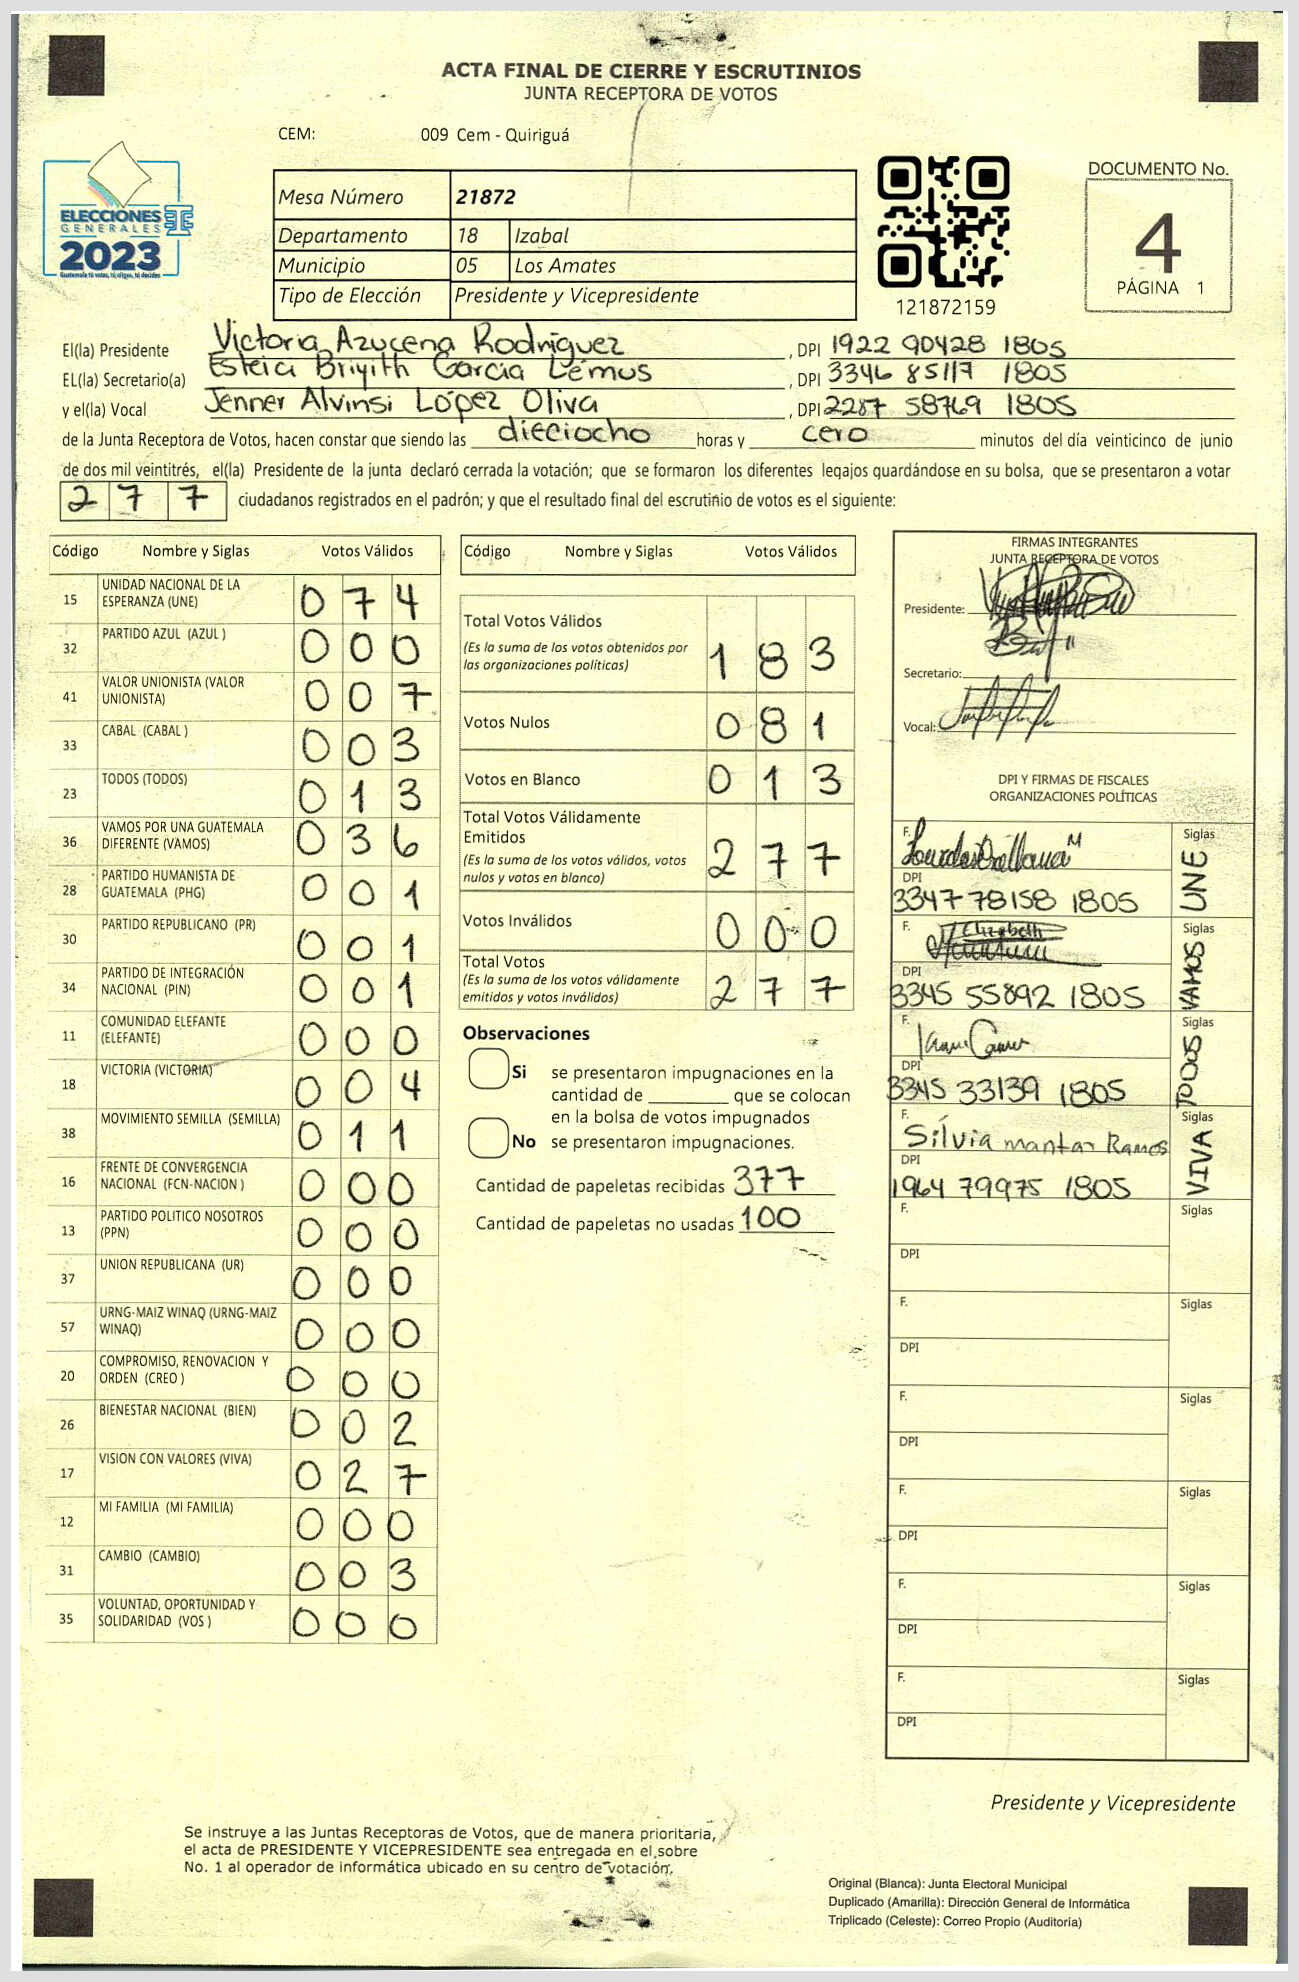 ACTA FINAL DE CIERRE Y ESCRUTINIOS
JUNTA RECEPTORA DE VOTOS
CEM: 009 Cem - Quiriguá
ELECCIONES
GENERALES
2023
Guatemala tú votas, tú eliges, tú decides
Mesa Número 21872
Departamento 18 Izabal
Municipio 05 Los Amates
Tipo de Elección Presidente y Vicepresidente
121872159
DOCUMENTO No.
4
PÁGINA 1
El(la) Presidente Victoria Azucena Rodríguez, DPI 1922 90428 1805
EL(la) Secretario(a) Briyith García Lemus, DPI 3346 85117 1805
y el(la) Vocal Jenner Alvinsi López Oliva, DPI 2287 58769 1805
de la Junta Receptora de Votos, hacen constar que siendo las dieciocho horas y cero minutos del día veinticinco de junio
de dos mil veintitrés, el(la) Presidente de la junta declaró cerrada la votación; que se formaron los diferentes legajos guardándose en su bolsa, que se presentaron a votar
277 ciudadanos registrados en el padrón; y que el resultado final del escrutinio de votos es el siguiente:
Código Nombre y Siglas Votos Válidos
15 UNIDAD NACIONAL DE LA
ESPERANZA (UNE) 074
32 PARTIDO AZUL (AZUL ) 000
41 VALOR UNIONISTA (VALOR
UNIONISTA) 007
33 CABAL (CABAL ) 003
23 TODOS (TODOS) 013
36 VAMOS POR UNA GUATEMALA
DIFERENTE (VAMOS) 036
28 PARTIDO HUMANISTA DE
GUATEMALA (PHG) 001
30 PARTIDO REPUBLICANO (PR) 001
34 PARTIDO DE INTEGRACIÓN
NACIONAL (PIN) 001
11 COMUNIDAD ELEFANTE
(ELEFANTE) 000
18 VICTORIA (VICTORIA) 004
38 MOVIMIENTO SEMILLA (SEMILLA) 011
16 FRENTE DE CONVERGENCIA
NACIONAL (FCN-NACION ) 000
13 PARTIDO POLITICO NOSOTROS
(PPN) 000
37 UNION REPUBLICANA (UR) 000
57 URNG-MAIZ WINAQ (URNG-MAIZ
WINAQ) 000
20 COMPROMISO, RENOVACION Y
ORDEN (CREO ) 000
26 BIENESTAR NACIONAL (BIEN) 002
17 VISION CON VALORES (VIVA) 027
12 MI FAMILIA (MI FAMILIA) 000
31 CAMBIO (CAMBIO) 003
35 VOLUNTAD, OPORTUNIDAD Y
SOLIDARIDAD (VOS ) 000
Código Nombre y Siglas Votos Válidos
Total Votos Válidos
(Es la suma de los votos obtenidos por
las organizaciones políticas) 183
Votos Nulos 081
Votos en Blanco 013
Total Votos Válidamente
Emitidos
(Es la suma de los votos válidos, votos
nulos y votos en blanco) 277
Votos Inválidos 000
Total Votos
(Es la suma de los votos válidamente
emitidos y votos inválidos) 277
Observaciones
Si se presentaron impugnaciones en la
cantidad de ________ que se colocan
en la bolsa de votos impugnados
No se presentaron impugnaciones.
Cantidad de papeletas recibidas 377
Cantidad de papeletas no usadas 100
FIRMAS INTEGRANTES
JUNTA RECEPTORA DE VOTOS
Presidente:
Secretario:
Vocal:
DPI Y FIRMAS DE FISCALES
ORGANIZACIONES POLÍTICAS
F. Siglas
UNE
DPI
3347 78158 1805
F. Elizabeth Siglas
VAMOS
DPI
3345 55892 1805
F. Siglas
TODOS
DPI
3345 33139 1805
F. Silvia Ramos Siglas
VIVA
DPI
1964 79975 1805
F. Siglas
DPI
F. Siglas
DPI
F. Siglas
DPI
F. Siglas
DPI
F. Siglas
DPI
F. Siglas
DPI
Presidente y Vicepresidente
Se instruye a las Juntas Receptoras de Votos, que de manera prioritaria,
el acta de PRESIDENTE Y VICEPRESIDENTE sea entregada en el sobre
No. 1 al operador de informática ubicado en su centro de votación.
Original (Blanca): Junta Electoral Municipal
Duplicado (Amarilla): Dirección General de Informática
Triplicado (Celeste): Correo Propio (Auditoría)